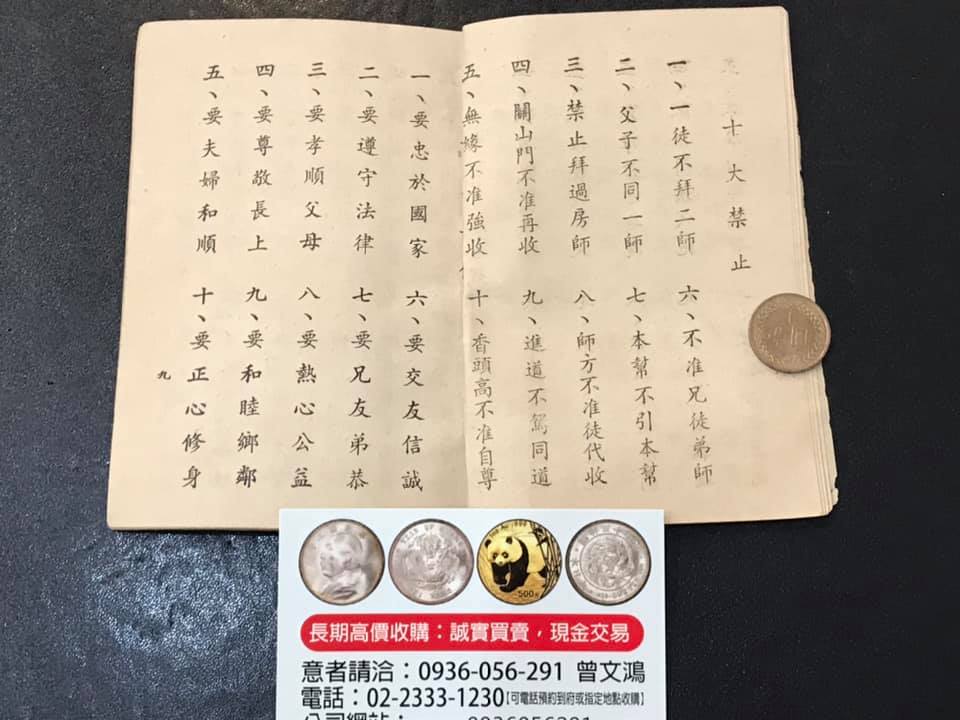 十大禁止
一、一徒不拜二師
二、父子不同一師
三、禁止拜過房師
四、關山門不准再收
五、無緣不准強收
六、不准兄徒弟師
七、本幫不引本幫
八、師方不准徒代收
九、進道不駡同道
十、香頭高不准自尊
一、要忠於國家
二、要遵守法律
三、要孝順父母
四、要尊敬長上
五、要夫婦和順
六、要交友信誠
七、要兄友弟恭
八、要熱心公益
九、要和睦鄉鄰
十、要正心修身
九
500元
長期高價收購：誠實買賣，現金交易
意者請洽：0936-056-291 曾文鴻
電話：02-2333-1230【可電話預約到府或指定地點收購】
公司網站：0936056291